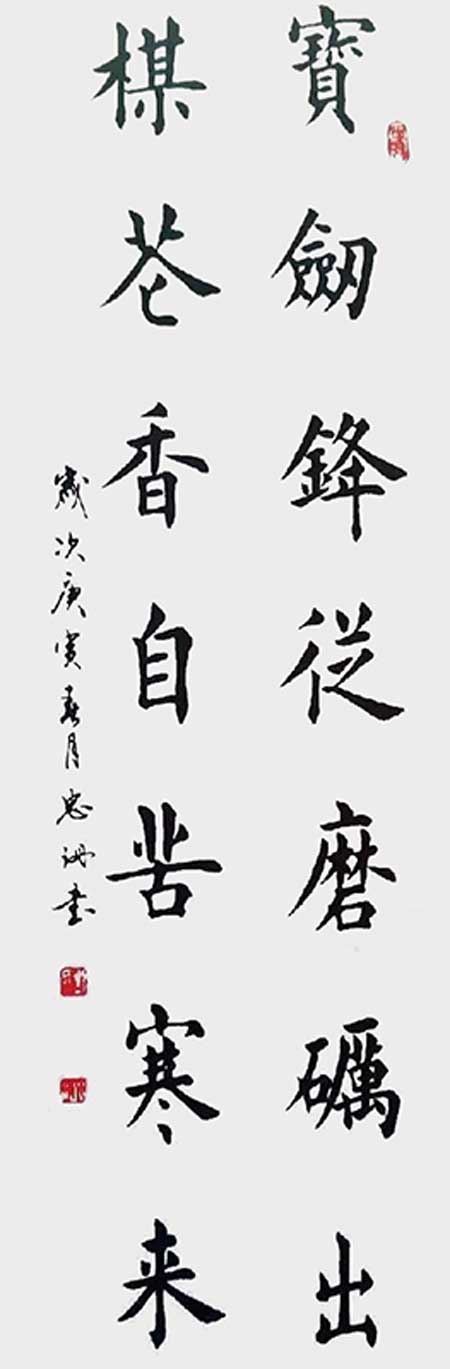 寶劒鋒従磨礪出
楳花香自苦寒来
歲次庚寅春月忠書